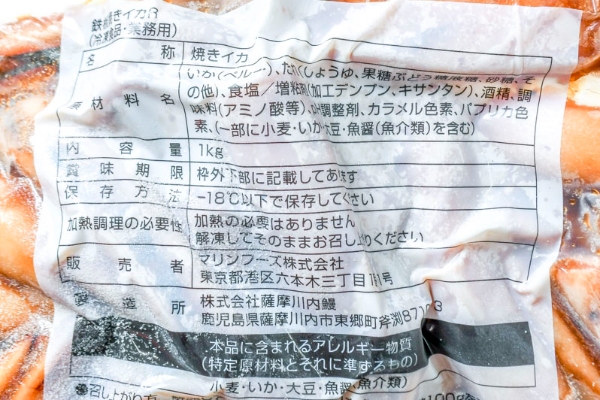 鉄板焼きイカR
(冷凍食品・業務用)
名 称 焼きイカ
いか(ペルー)、たれ(しょうゆ、果糖ぶどう糖液糖、砂糖、そ
の他)、食塩／増粘剤(加工デンプン、キサンタン)、酒精、調
原材料名 味料(アミノ酸等)、pH調整剤、カラメル色素、パプリカ色
素、(一部に小麦・いか・大豆・魚醤(魚介類)を含む)
内容量 1kg
賞味期限 枠外下部に記載してあます
保存方法 −18℃以下で保存してください
加熱調理の必要性 加熱の必要はありません
解凍してそのままお召し上がりください
販売者 マリンフーズ株式会社
東京都港区六本木三丁目
製造所 株式会社薩摩川内鰻
鹿児島県薩摩川内市東郷町斧渕
本品に含まれるアレルギー物質
(特定原材料とそれに準ずるもの)
小麦・いか・大豆・魚醤(魚介類)
召し上がり方
100g